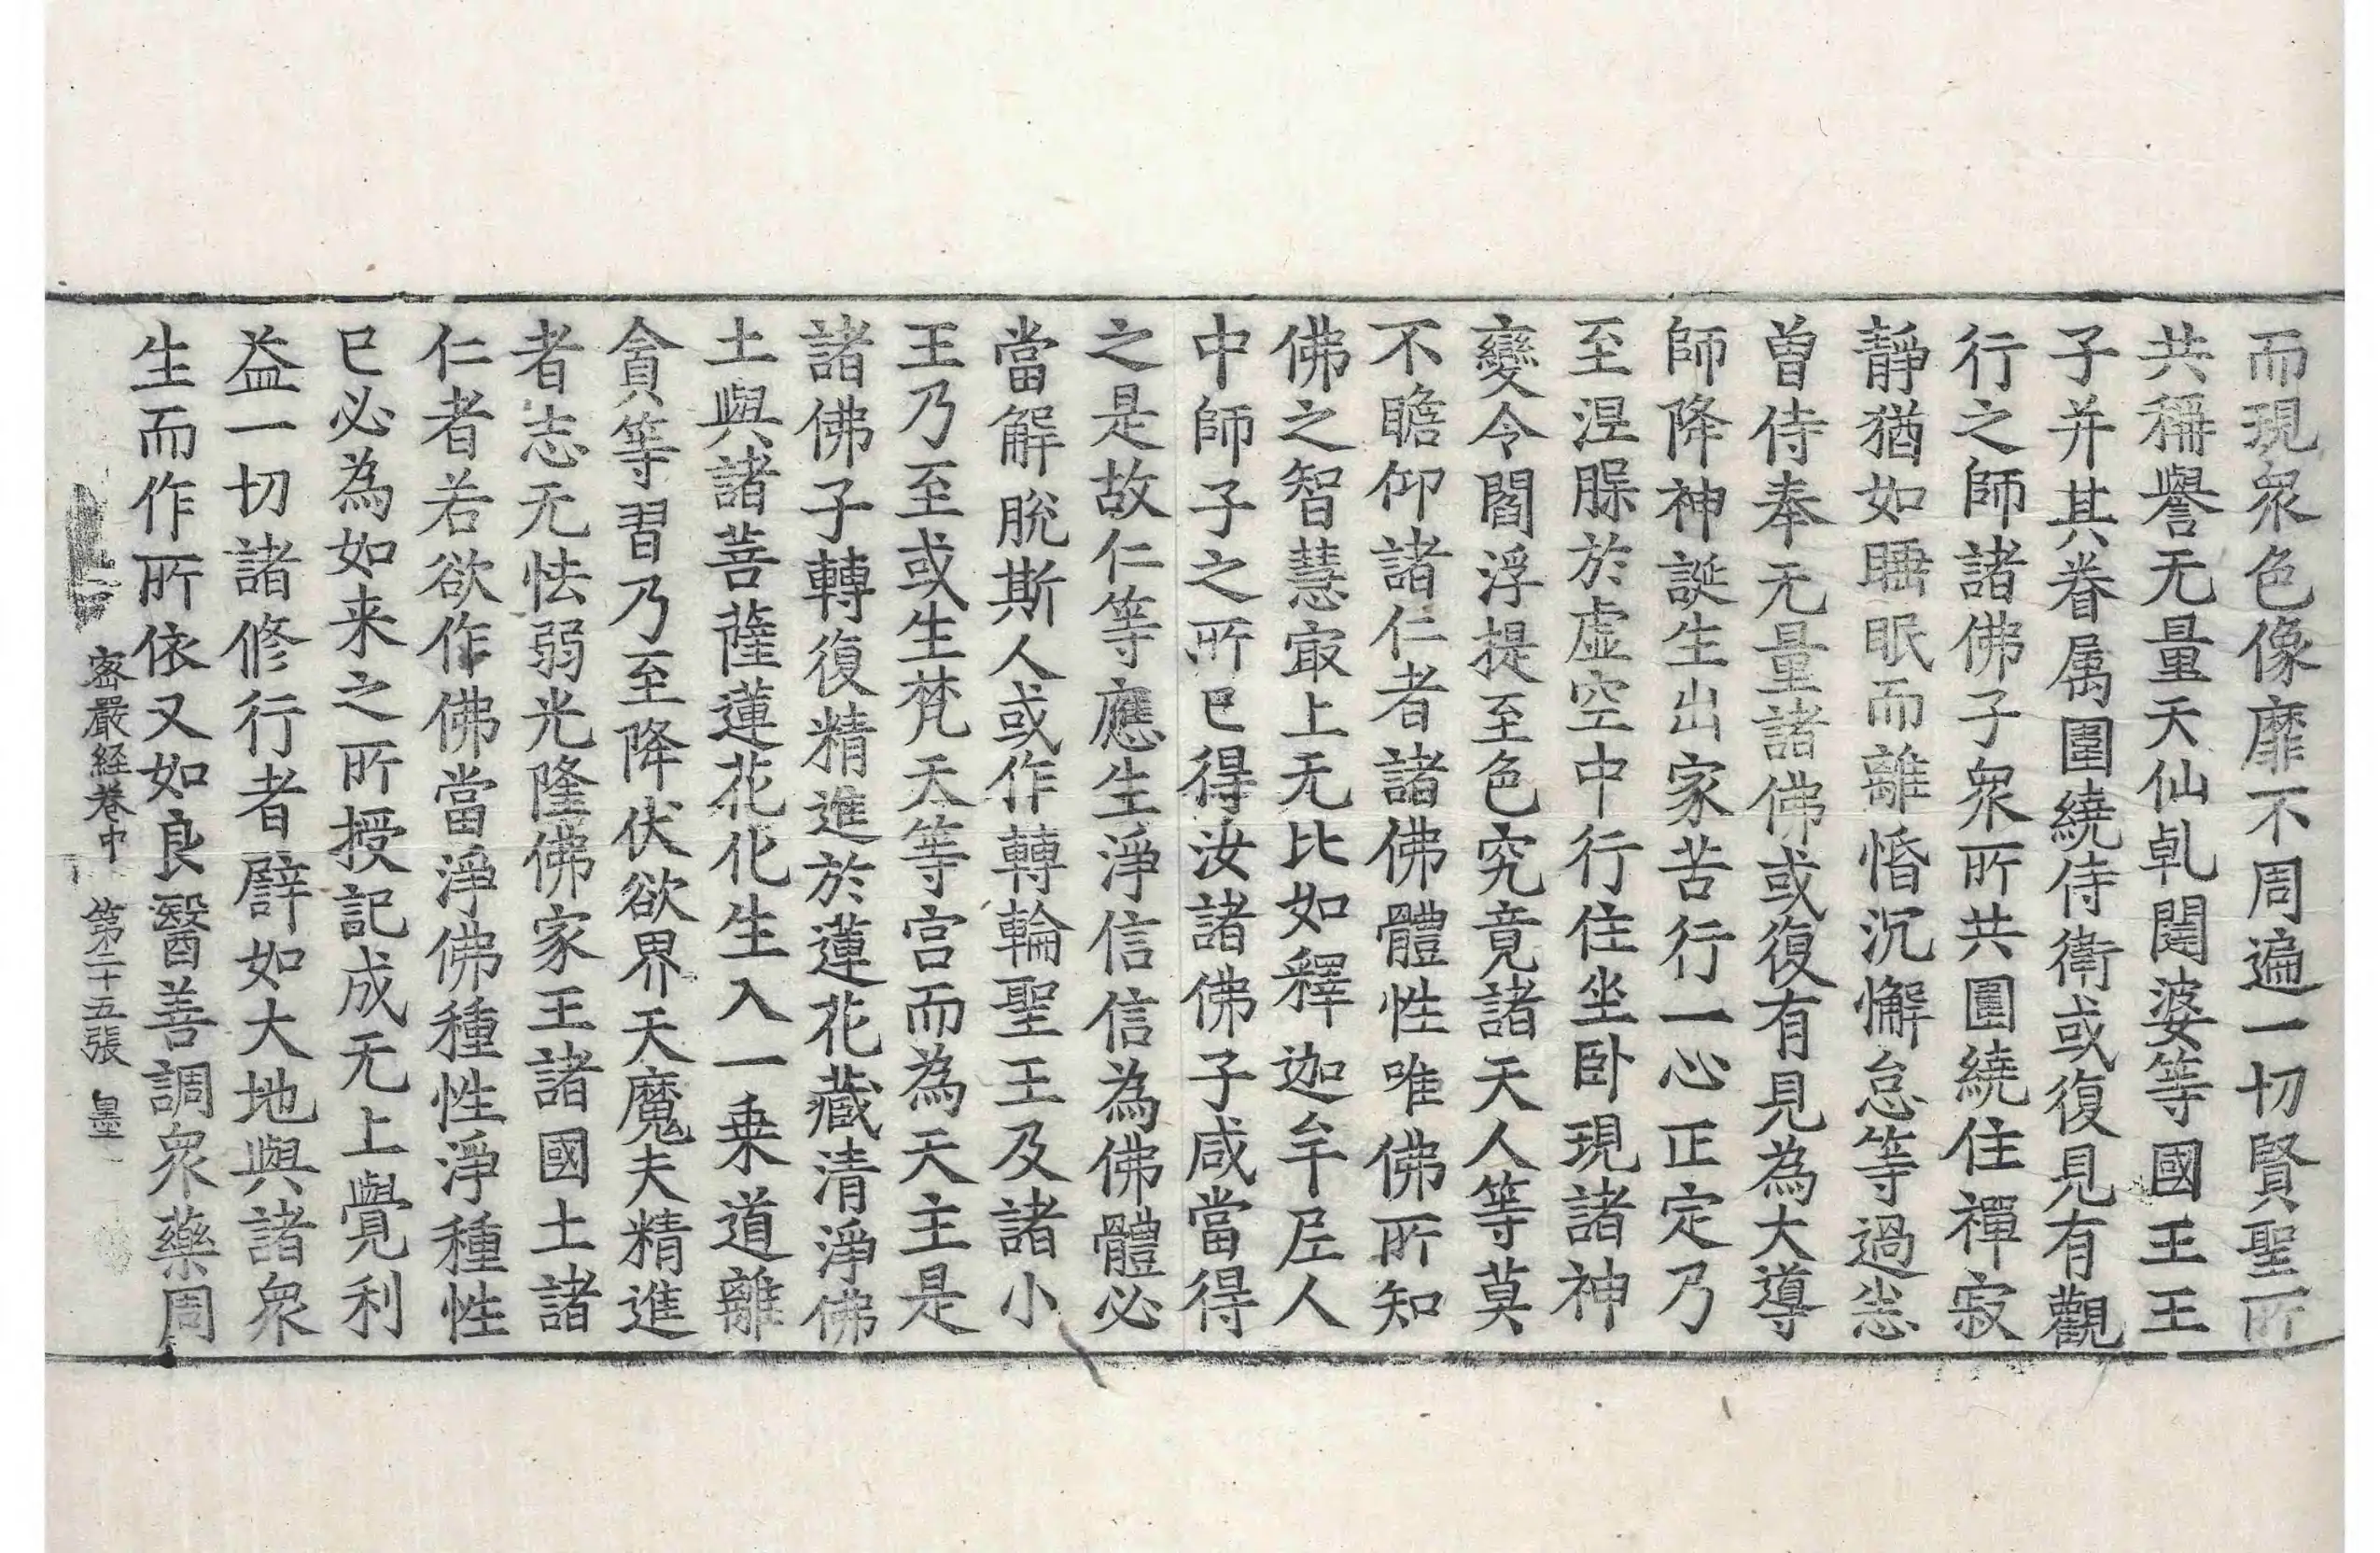 而現衆色像靡不周遍一切賢聖所
共稱譽无量天仙乹闥婆等國王王
子并其眷属圍繞侍衛或復見有觀
行之師諸佛子衆所共圍繞住禪寂
靜猶如睡眠而離惛沉懈怠等過恙
曾侍奉无量諸佛或復有見為大導
師降神誕生出家苦行一心正定乃
至涅槃於虛空中行住坐卧現諸神
變令閻浮提至色究竟諸天人等莫
不瞻仰諸仁者諸佛體性唯佛所知
佛之智慧㝡上无比如釋迦牟尼人
中師子之所已得汝諸佛子咸當得
之是故仁等應生淨信信為佛體必
當解脫斯人或作轉輪聖王及諸小
王乃至或生梵天等宫而為天主是
諸佛子轉復精進於蓮花藏清淨佛
土與諸菩薩蓮花化生入一乗道離
貪等習乃至降伏欲界天魔夫精進
者志无怯弱光隆佛家王諸國土諸
仁者若欲作佛當淨佛種性淨種性
已必為如来之所授記成无上覺利
益一切諸修行者譬如大地與諸衆
生而作所依又如良醫善調衆藥周
密嚴経卷中 第二十五張 墨